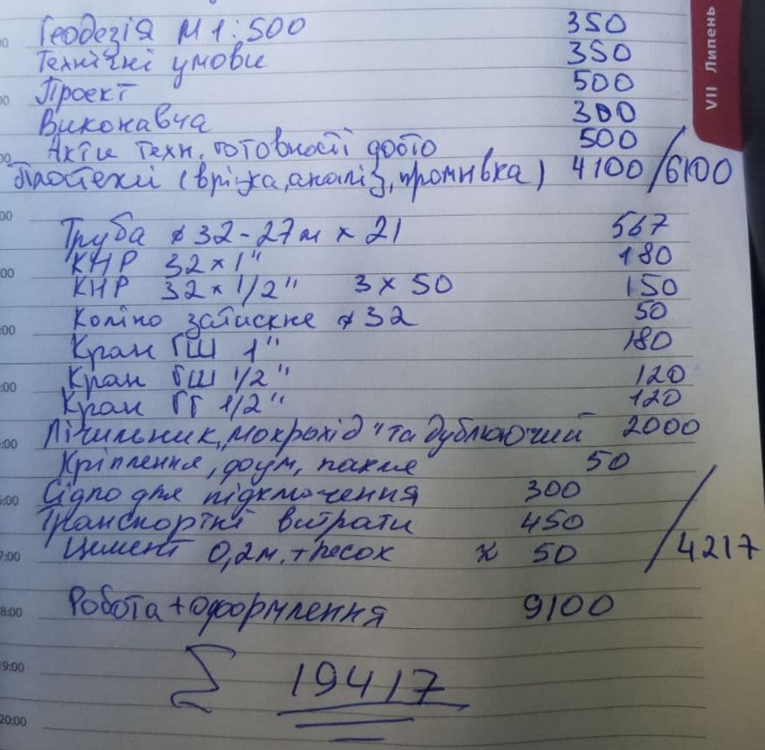 Геодезія М 1:500 350
Технічні умови 350
Проект 500
Виконавча 300
Акти техн. готовності 500
(врізка, аналіз, промивка) 4100/6100
Труба ø 32 - 27м x 21 567
КНР 32 x 1" 180
КНР 32 x 1/2" 3 x 50 150
Коліно затискне ø 32 50
Кран ГШ 1" 180
Кран ГШ 1/2" 120
Кран ГГ 1/2" 120
Лічильник "мокрохід" та дублюючий 2000
Кріплення, фум, пакля 50
Сідло для підключення 300
Транспортні витрати 450
Цемент 0,2м. + песок 50 /4217
Робота + оформлення 9100
Σ 19417
VII Липень
7:00
8:00
19:00
20:00